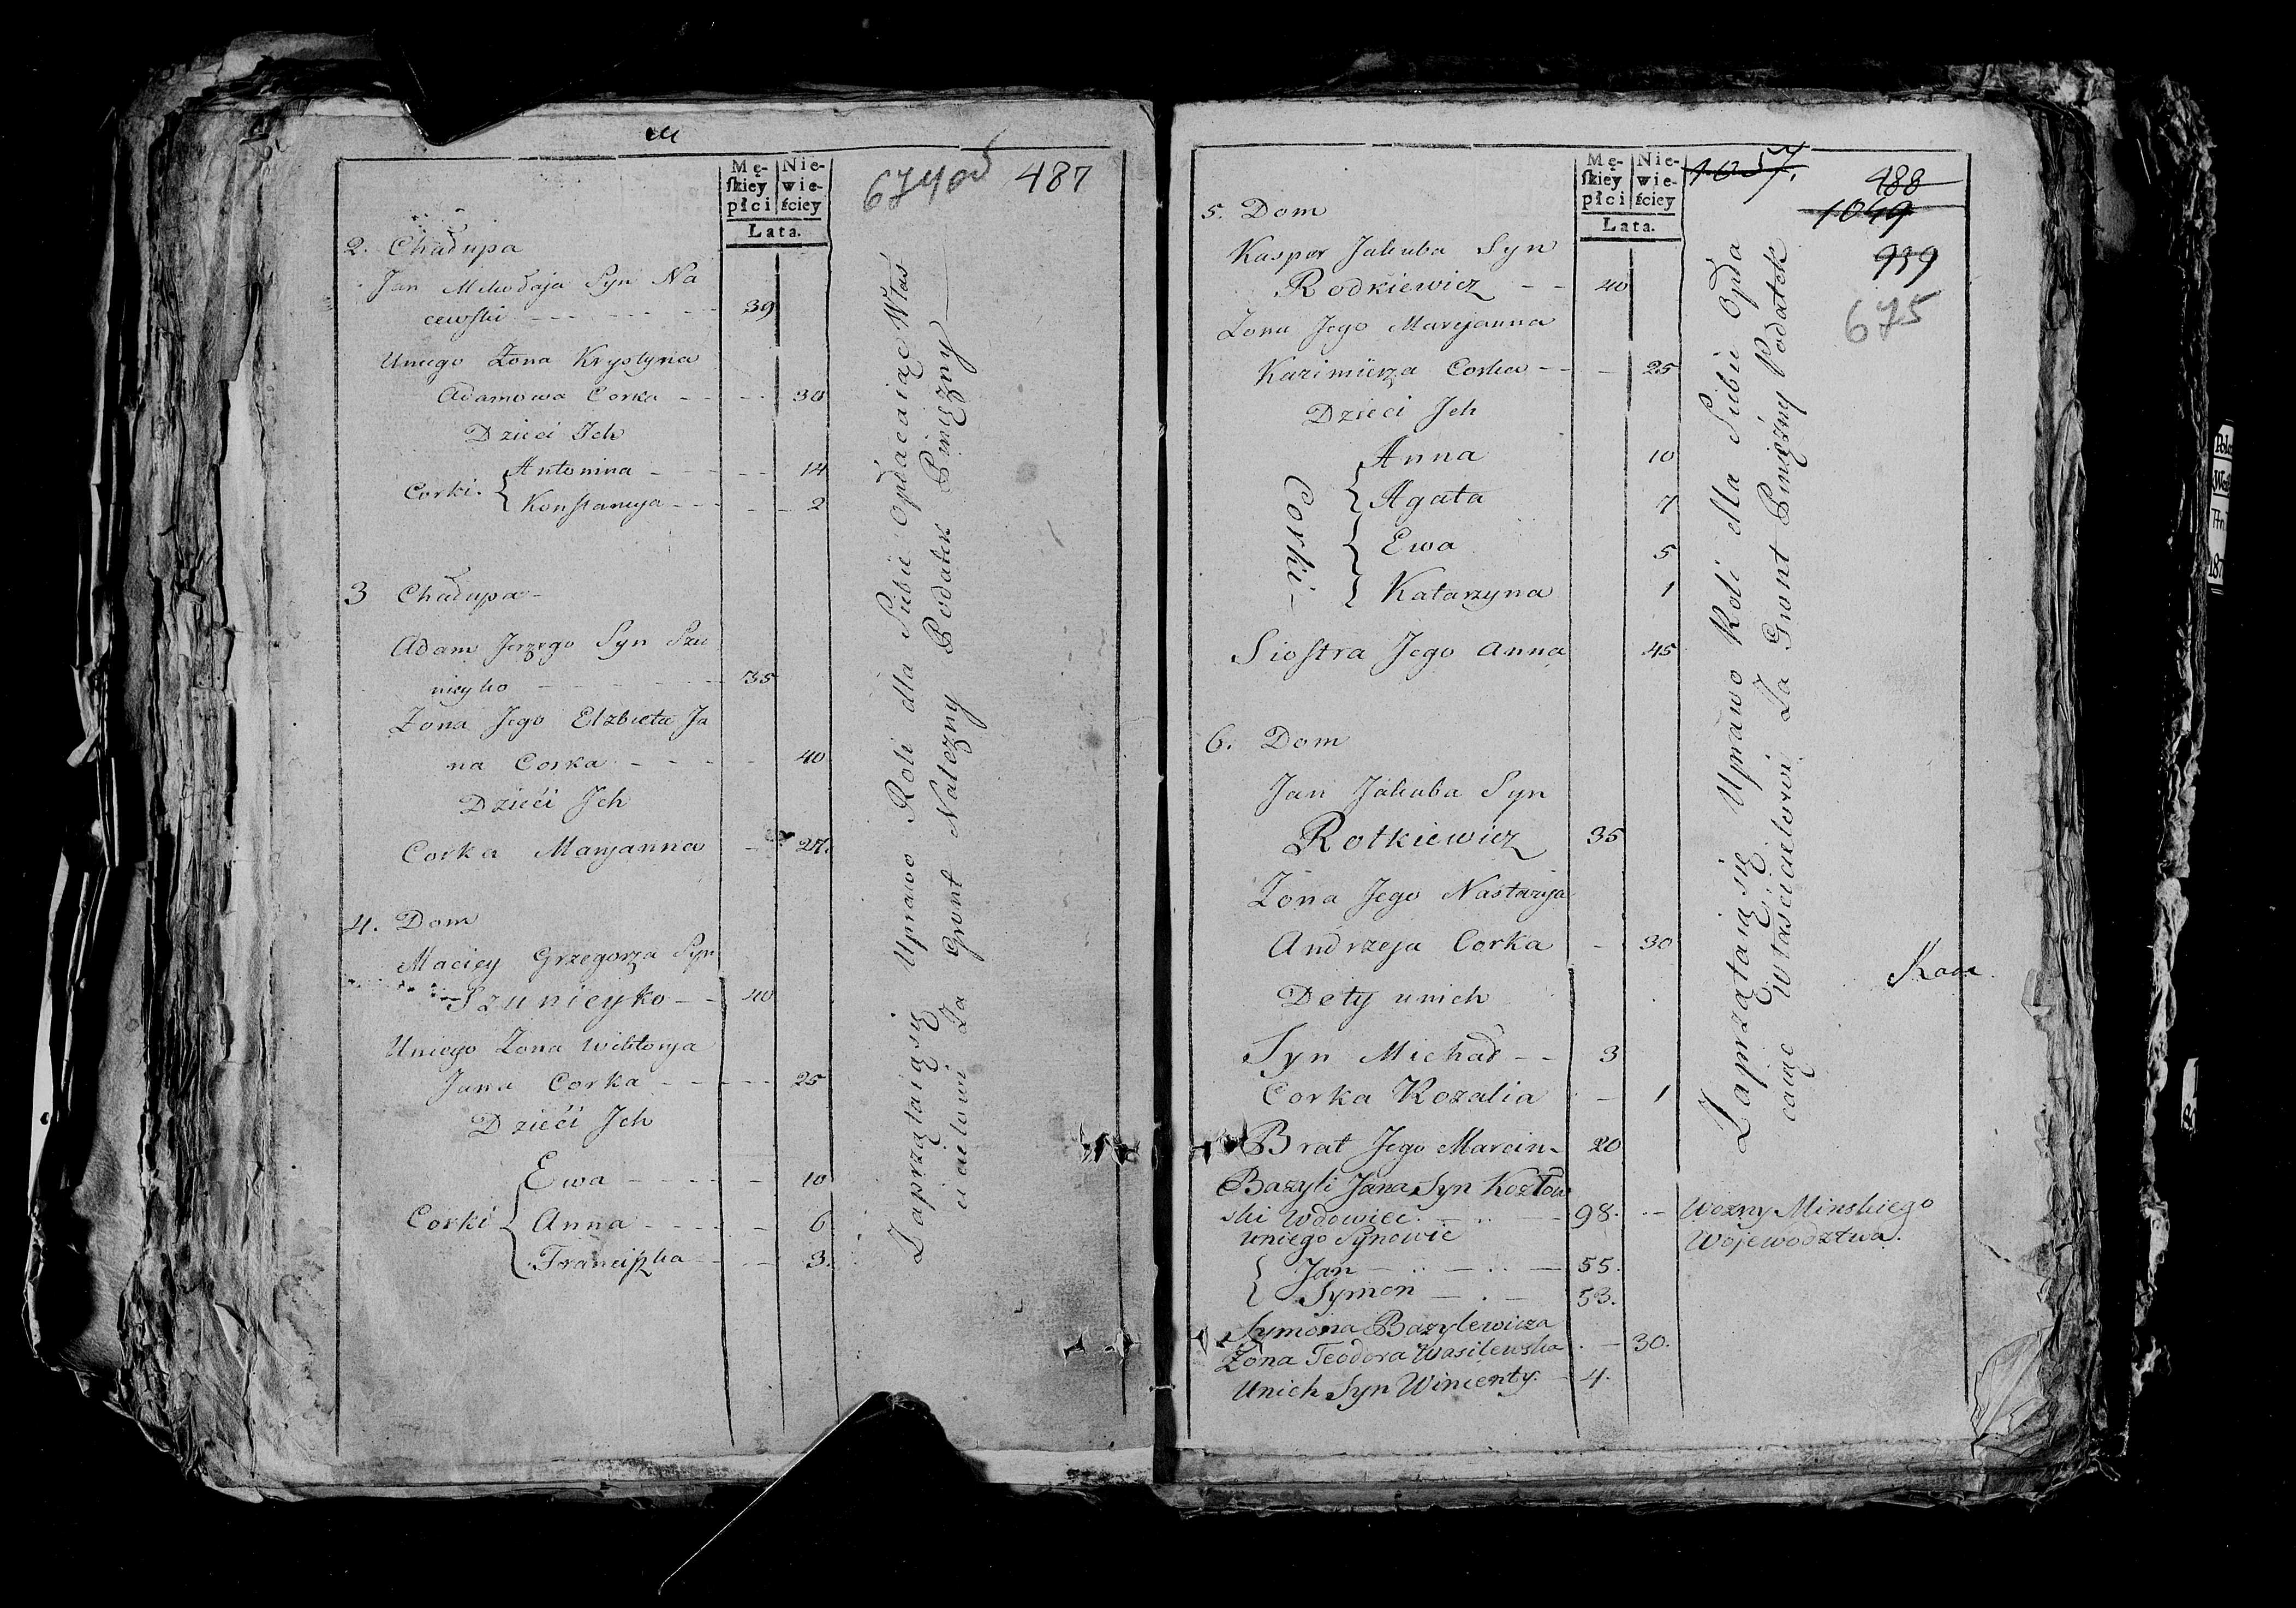 Mę- Nie-
skiey wie-
płci ściey
Lata.
674 od
487
2. Chałupa
Jan Mikołaja Syn Na
cewski 39
Uniego Zona Krystyna
Adamowa Corka 30
Dzieci Ich
Corki Antonina 14
Konstancya 2
3 Chałupa
Adam Jerzego Syn Szu
nieyko 35
Zona Jego Elzbieta Ja
na Corka 40
Dzieći Ich
Corka Maryanna 27.
4. Dom
Maciey Grzegorza Syn
Szunieyko 40
Uniego Zona Wiktorya
Jana Corka 25
Dzieći Ich
Ewa 10
Corki Anna 6
Franciszka 3.
Zaprzątaią się Uprawo Roli dla Siebie Opłacaiąc Włas
cicielowi Za Gront Nalezny Podatek Pinięzny
Mę- Nie-
skiey wie-
płci ściey
Lata.
1057.
488
1049
939
675
5. Dom
Kasper Jakuba Syn
Rodkiewicz 40
Zona Jego Maryanna
Kazimierza Corka 25
Dzieci Ich
Corki
Anna 10
Agata 7
Ewa 5
Katarzyna 1
Siostra Jego Anna 45
6. Dom
Jan Jakuba Syn
Rotkiewicz 35
Zona Jego Nastazya
Andrzeja Corka 30
Dety unich
Syn Michał 3
Corka Rozalia 1
Brat Jego Marcin 20
Bazyli Jana Syn Kozłow
ski Wdowiec. 98. Wozny Minskiego
Wojewodztwa.
Uniego Synowie
Jan 55.
Symon 53.
Symona Bazylewicza
Zona Teodora Wasilewska 30.
Unich Syn Wincenty 4.
Zaprzątaią się Uprawo Roli dla Siebie Opła
caiąc Własciicielowi Za Gront Pinięzny Podatek